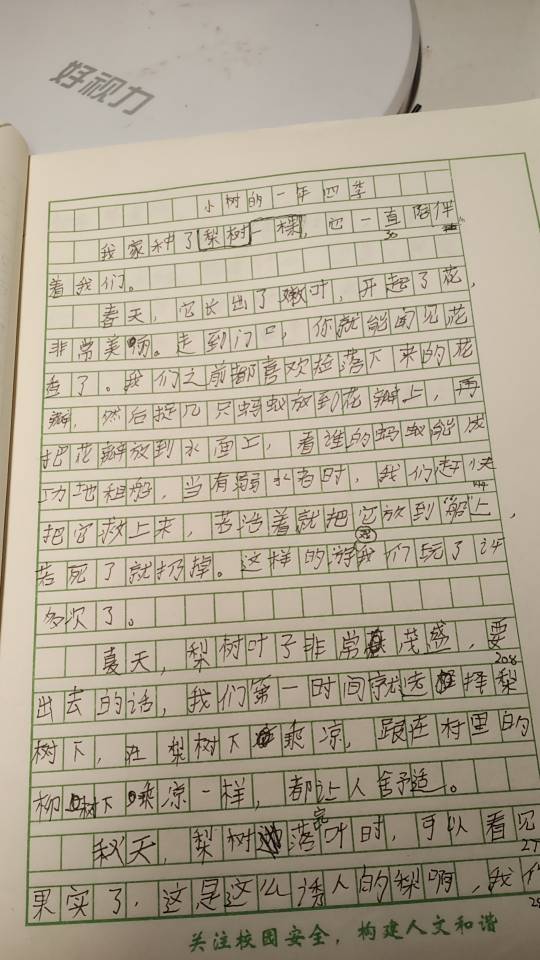 好视力
小树的一年四季
我家种了梨树一棵，它一直陪伴
着我们。
春天，它长出了嫩叶，开起了花，
非常美丽。走到门口，你就能闻见花
香了。我们之前都喜欢捡落下来的花
瓣，然后捉几只蚂蚁放到花瓣上，再
把花瓣放到水面上，看谁的蚂蚁能成
功地租船，当有弱水者时，我们赶快
把它救上来，若活着就把它放到“船”上，
若死了就扔掉。这样的游戏我们玩了许
多次了。
夏天，梨树叶子非常茂盛，要
208
出去的话，我们第一时间就选择梨
树下，在梨树下乘凉，跟在村里的
柳树下乘凉一样，都让人舒适。
秋天，梨树落完叶时，可以看见
果实了，这是这么诱人的梨啊，我们
关注校园安全，构建人文和谐